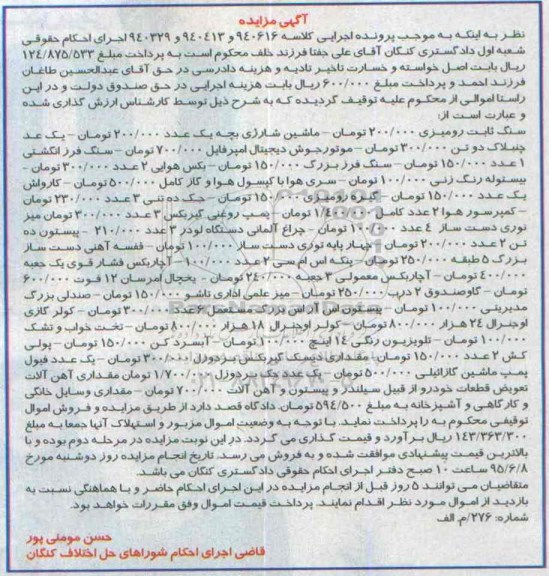 آگهی مزایده
نظر به اینکه به موجب پرونده اجرایی کلاسه ۹۴۰۶۱۶ و ۹۴۰۴۱۳ و ۹۴۰۳۲۹ اجرای احکام حقوقی
شعبه اول دادگستری کنگان آقای علی جفتا فرزند خلف محکوم است به پرداخت مبلغ ۱۲۴/۸۷۵/۵۳۳
ریال بابت اصل خواسته و خسارت تاخیر تادیه و هزینه دادرسی در حق آقای عبدالحسین طاغان
فرزند احمد و پرداخت مبلغ ۶۰۰/۰۰۰ ریال بابت هزینه اجرایی در حق صندوق دولت و در این
راستا اموالی از محکوم علیه توقیف گردیده که به شرح ذیل توسط کارشناس ارزش گذاری شده
و عبارت است از:
سنگ ثابت رومیزی ۲۰۰/۰۰۰ تومان – ماشین شارژی بچه یک عدد ۲۰۰/۰۰۰ تومان – یک عدد
چنبلاک دو تن ۳۰۰/۰۰۰ تومان – موتورجوش دیجیتال امپرفایل ۷۰۰/۰۰۰ تومان – سنگ فرز انگشتی
۱ عدد ۱۵۰/۰۰۰ تومان – سنگ فرز بزرگ ۱۵۰/۰۰۰ تومان – بکس هوایی ۲ عدد ۳۰۰/۰۰۰ تومان –
پیستوله رنگ زنی ۱۰۰/۰۰۰ تومان – سری هوا با کپسول هوا و گاز کامل ۵۰۰/۰۰۰ تومان – کارواش
یک عدد ۱۵۰/۰۰۰ تومان – گیره رومیزی ۱۵۰/۰۰۰ تومان – جک ده تنی ۳ عدد ۲۳۰/۰۰۰ تومان
– کمپرسور هوا ۲ عدد کامل ۱/۴۰۰/۰۰۰ تومان – پمپ روغنی گیربکس ۳ عدد ۳۰۰/۰۰۰ تومان میز
توری دست ساز ۴ عدد ۱۰۰/۰۰۰ تومان – چراغ آلمانی دستگاه لودر ۳ عدد ۲۱۰/۰۰۰ – پیستون ده
تن ۲ عدد ۲۰۰/۰۰۰ تومان – چهار پایه توری دست ساز ۱۰۰/۰۰۰ تومان – قفسه آهنی دست ساز
بزرگ ۵ طبقه ۲۵۰/۰۰۰ تومان – پنکه اس ام سی ۲ عدد ۱۰۰/۰۰۰ – آچاربکس فشار قوی یک جعبه
۴۰۰/۰۰۰ تومان – آچاربکس معمولی ۳ جعبه ۲۴۰/۰۰۰ تومان – یخچال امرسان ۱۲ فوت ۶۰۰/۰۰۰
تومان – گاوصندوق ۲ درب ۲۵۰/۰۰۰ تومان – میز علمی اداری تاشو ۱۵۰/۰۰۰ تومان – صندلی بزرگ
مدیریتی ۱۰۰/۰۰۰ تومان – پیستون اس آر اس بزرگ مستعمل ۶ عدد ۳۰۰/۰۰۰ تومان – کولر گازی
اوجنرال ۲۴ هزار ۸۰۰/۰۰۰ تومان – کولر اوجنرال ۱۸ هزار ۸۰۰/۰۰۰ تومان – تخت خواب و تشک
۱۰۰/۰۰۰ تومان – تلویزیون رنگی ۱۴ اینچ ۱۰۰/۰۰۰ تومان – آبسرد کن ۱۵۰/۰۰۰ تومان – پولی
کش ۲ عدد ۱۵۰/۰۰۰ تومان – مقداری دیسک گیربکس بردوزل ۳۰۰/۰۰۰ تومان – یک عدد فیول
پمپ ماشین گازائیلی ۵۰۰/۰۰۰ تومان – یک عدد جک بردوزل ۱/۷۰۰/۰۰۰ تومان مقداری آهن آلات
تعویض قطعات خودرو از قبیل سیلندر و پیستون و آهن آلات ۷۰۰/۰۰۰ تومان – مقداری وسایل خانگی
و کارگاهی و آشپزخانه به مبلغ ۵۹۴/۵۰۰ تومان. دادگاه قصد دارد از طریق مزایده و فروش اموال
توقیفی محکوم به را پرداخت نماید. با توجه به وضعیت اموال مزبور و استهلاک آنها جمعا به مبلغ
۱۴۳/۳۶۳/۳۰۰ ریال برآورد و قیمت گذاری می گردد. در این نوبت مزایده در مرحله دوم بوده و با
بالاترین قیمت پیشنهادی موافقت شده و به فروش می رسد. تاریخ انجام مزایده روز دوشنبه مورخ
۹۵/۶/۸ ساعت ۱۰ صبح دفتر اجرای احکام حقوقی دادگستری کنگان می باشد.
متقاضیان می توانند ۵ روز قبل از انجام مزایده در این اجرای احکام حاضر و با هماهنگی نسبت به
بازدید از اموال مورد نظر اقدام نمایند. پرداخت قیمت اموال وفق مقررات خواهد بود.
شماره: ۲۷۶/م. الف
حسن مومنلی پور
قاضی اجرای احکام شوراهای حل اختلاف کنگان